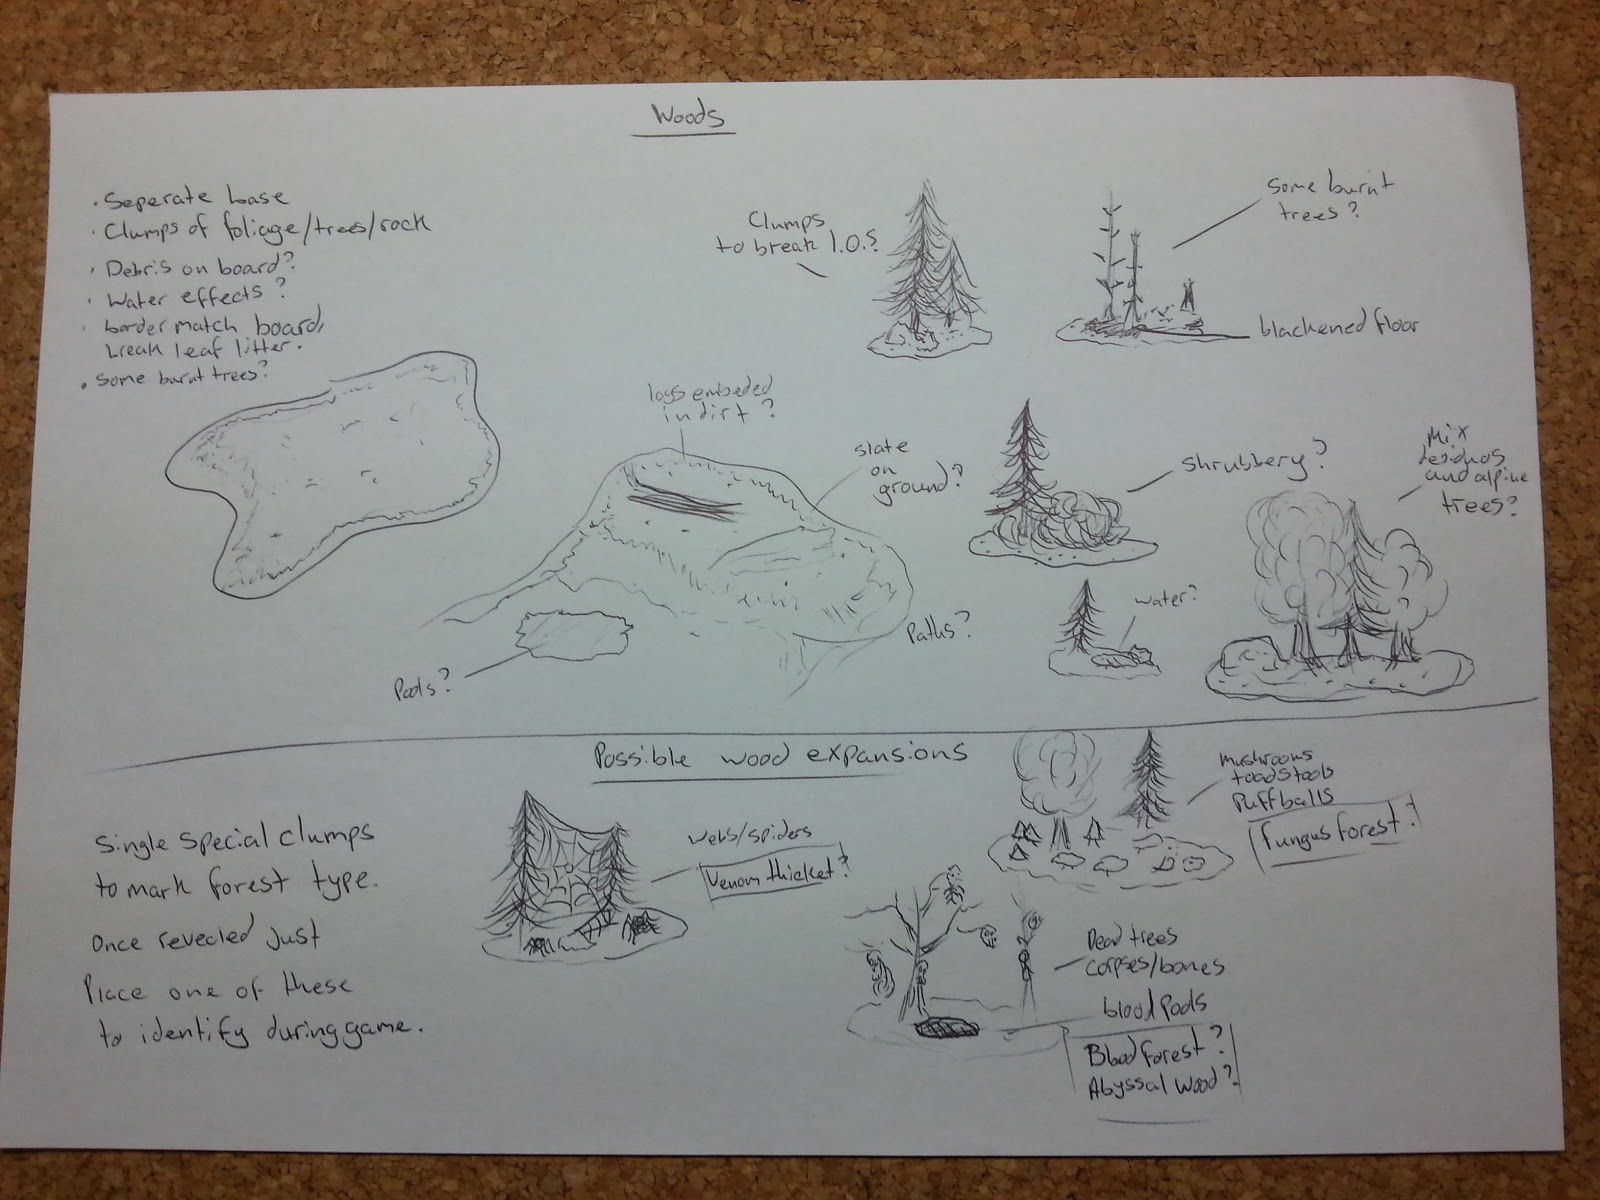 Woods
· Seperate base
· Clumps of foliage/trees/rock
· Debris on board?
· Water effects?
· border match board,
break leaf litter.
· Some burnt trees?
Clumps
to break L.O.S
Some burnt
trees?
blackened floor
logs embeded
in dirt?
slate
on
ground?
Shrubbery?
Mix
and alpine
trees?
water?
Paths?
Pools?
Possible wood expansions
Single special clumps
to mark forest type.
Once revealed just
Place one of these
to identify during game.
webs/spiders
Venom thicket?
Mushrooms
toadstools
Puffballs
Fungus forest?
Dead trees
corpses/bones
blood Pools
Blood forest?
Abyssal Wood?